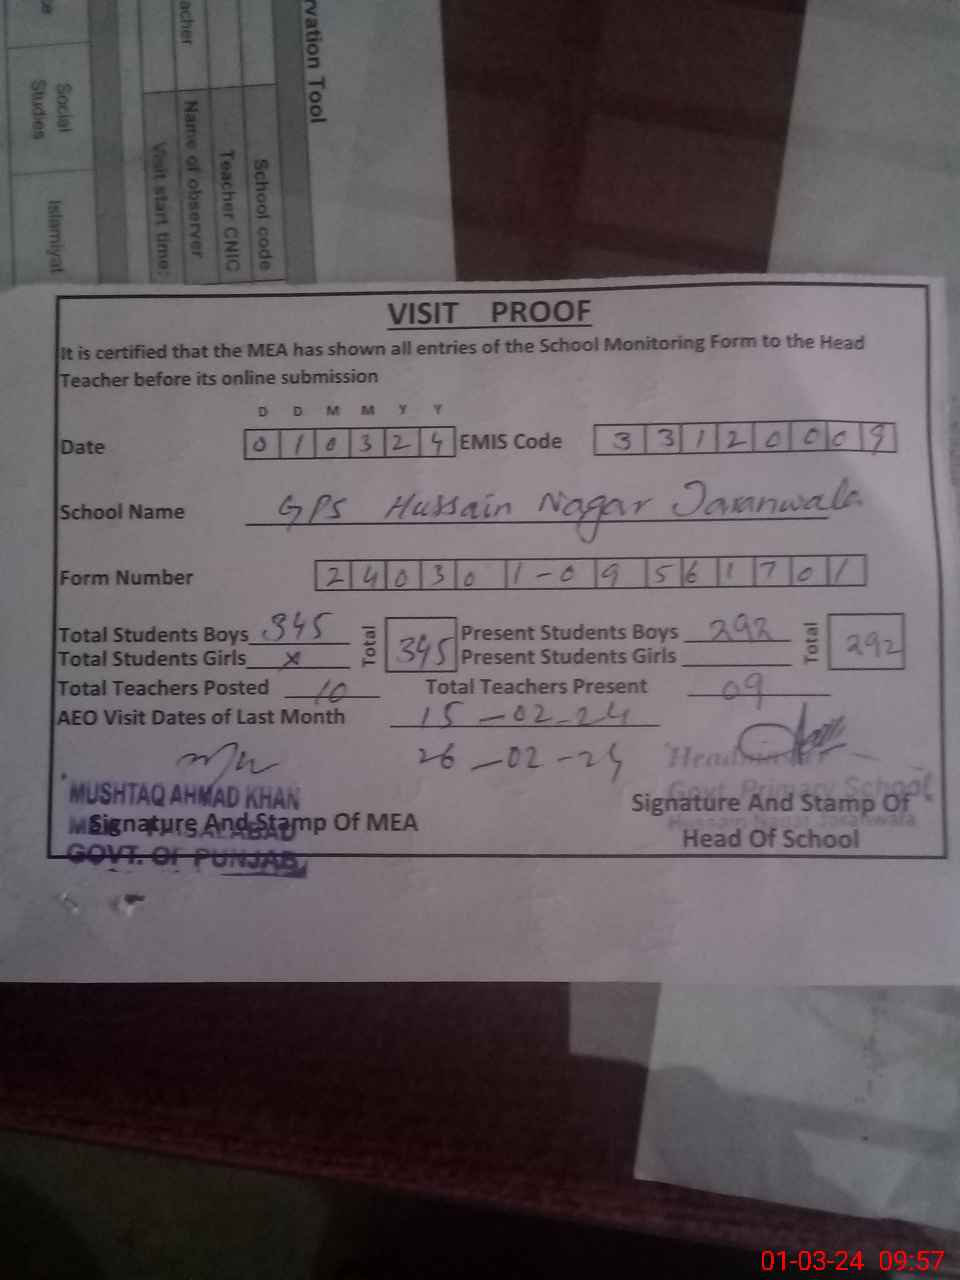 rvation Tool
School code
Teacher CNIC
Name of observer
Visit start time:
acher
Social
Studies
Islamiyat
VISIT PROOF
It is certified that the MEA has shown all entries of the School Monitoring Form to the Head
Teacher before its online submission
D D M M Y Y
Date 0 1 0 3 2 4 EMIS Code 3 3 1 2 0 0 0 9
School Name GPS Hussain Nagar Jaranwala
Form Number 2 4 0 3 0 1 - 0 9 5 6 1 7 0 1
Total Students Boys 345 Total 345 Present Students Boys 292 Total 292
Total Students Girls x Present Students Girls
Total Teachers Posted 10 Total Teachers Present 09
AEO Visit Dates of Last Month 15-02-24
26-02-24
Headmaster
MUSHTAQ AHMAD KHAN
Govt. Primary School
Signature And Stamp Of MEA
Signature And Stamp Of
Hussain Nagar Jaranwala
Head Of School
GOVT. OF PUNJAB
01-03-24 09:57